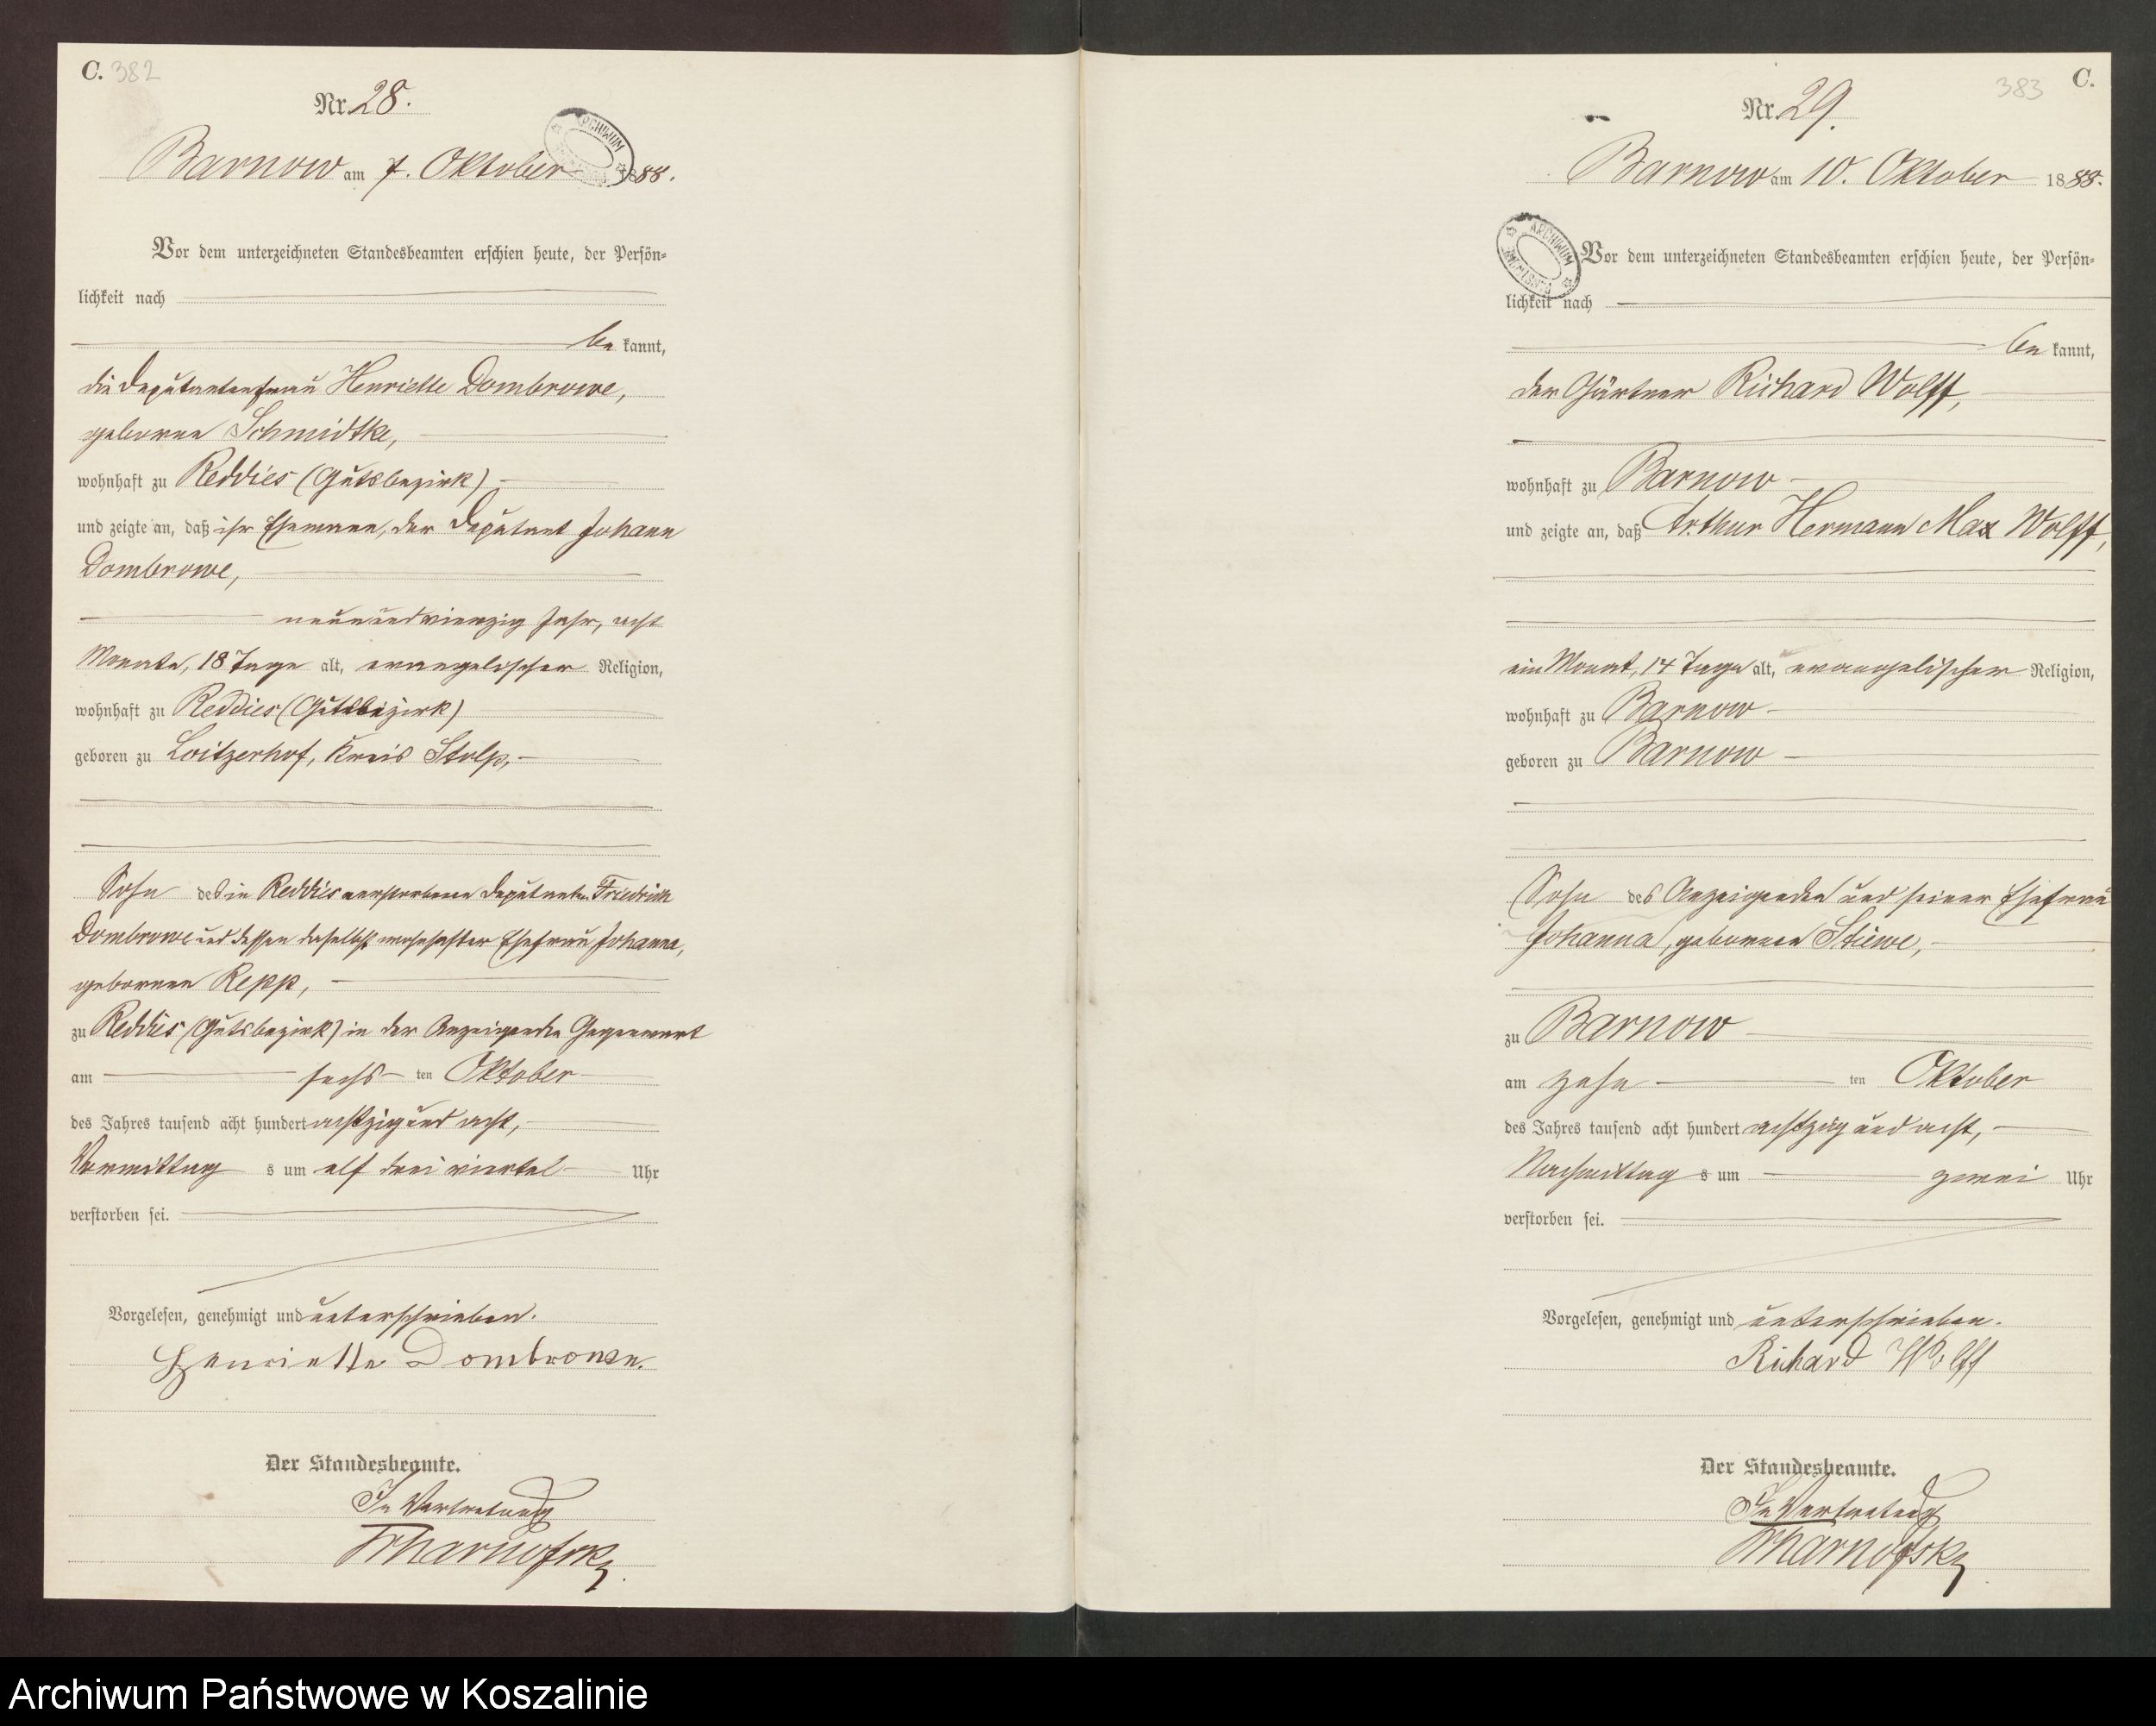 C. 382
Nr. 28.
ARCHIWUM
Barnow am 7. Oktober 1888.
Vor dem unterzeichneten Standesbeamten erschien heute, der Persön-
lichkeit nach
be kannt,
die Deputantenfrau Henriette Dombrowe,
geborne Schmidtke,
wohnhaft zu Reddies (Gutsbezirk)
und zeigte an, daß ihr Ehemann, der Deputant Johann
Dombrowe,
neunundvierzig Jahr, acht
Monate, 18 Tage alt, evangelischer Religion,
wohnhaft zu Reddies (Gutsbezirk)
geboren zu Loitzerhof, Kreis Stolp,
Sohn des in Reddies verstorbenen Deputanten Friedrich
Dombrowe und dessen daselbst wohnhafter Ehefrau Johanna,
gebornen Repp,
zu Reddies (Gutsbezirk) in der Anzeigenden Gegenwart
am sechs ten Oktober
des Jahres tausend acht hundert achtzig und acht,
Vormittag s um elf drei viertel Uhr
verstorben sei.
Vorgelesen, genehmigt und unterschrieben.
Henriette Dombrowe.
Der Standesbeamte.
In Vertretung
C.
383
Nr. 29.
Barnow am 10. Oktober 1888.
ARCHIWUM
Vor dem unterzeichneten Standesbeamten erschien heute, der Persön-
lichkeit nach
be kannt,
der Gärtner Richard Wolff,
wohnhaft zu Barnow
und zeigte an, daß Arthur Hermann Max Wolff,
ein Monat, 14 Tage alt, evangelischer Religion,
wohnhaft zu Barnow
geboren zu Barnow
Sohn des Anzeigenden und seiner Ehefrau
Johanna, gebornen Stüwe,
zu Barnow
am zehn ten Oktober
des Jahres tausend acht hundert achtzig und acht,
Nachmittag s um zwei Uhr
verstorben sei.
Vorgelesen, genehmigt und unterschrieben.
Richard Wolff
Der Standesbeamte.
In Vertretung
Archiwum Państwowe w Koszalinie